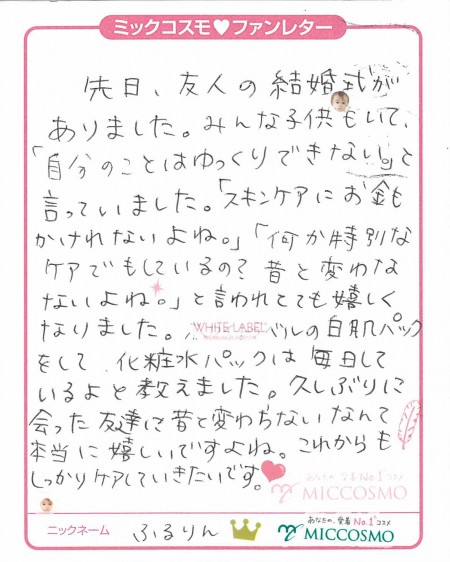 ミックコスモ♥ファンレター
先日、友人の結婚式が
ありました。みんな子供もいて、
「自分のことはゆっくりできない。」と
言っていました。「スキンケアにお金も
かけれないよね。」「何か特別な
ケアでもしているの？昔と変わな
ないよね。」と言われてとても嬉しく
なりました。 WHITE LABEL ベルの自肌パック
をして 化粧水パックは毎日して
いるよと教えました。久しぶりに
会った友達に昔と変わらないなんて
本当に嬉しいですよね。これからも
しっかりケアしていきたいです。
あなたの、愛着No.1コスメ
MICCOSMO
ニックネーム ふるりん
あなたの、愛着No.1コスメ
MICCOSMO